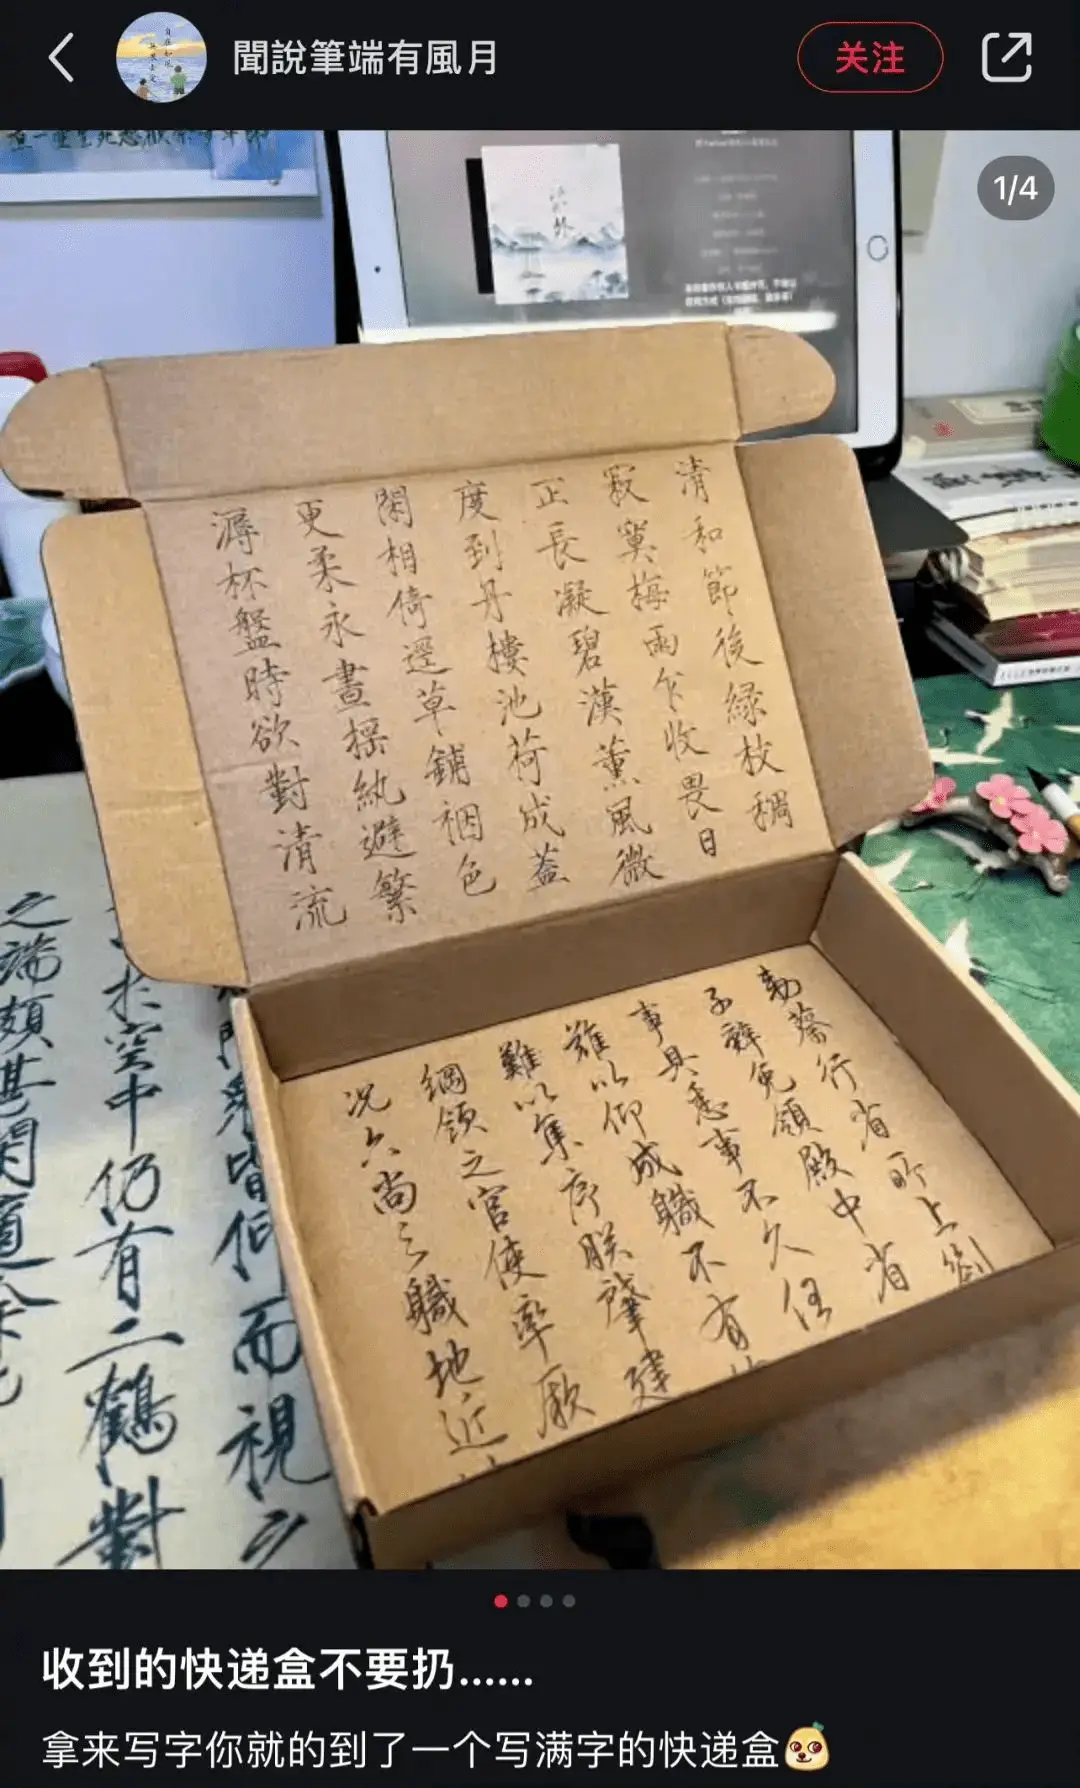 聞說筆端有風月
关注
1/4
清和節後緑枝稠
寂寞梅雨乍收畏日
正長凝碧漢薰風微
度到丹樓池荷成蓋
閑相倚逕草鋪裀色
更柔永晝揺紈避繁
溽杯盤時欲對清流
勅蔡行省所上劄
子辭免領殿中省
事具悉事不久任
難以仰成職不有
難以集序朕肇建
綱領之官使率厥
況六尚之職地近
皆仰而視之
於空中仍有二鶴對
之端頗甚閑適
收到的快递盒不要扔……
拿来写字你就的到了一个写满字的快递盒